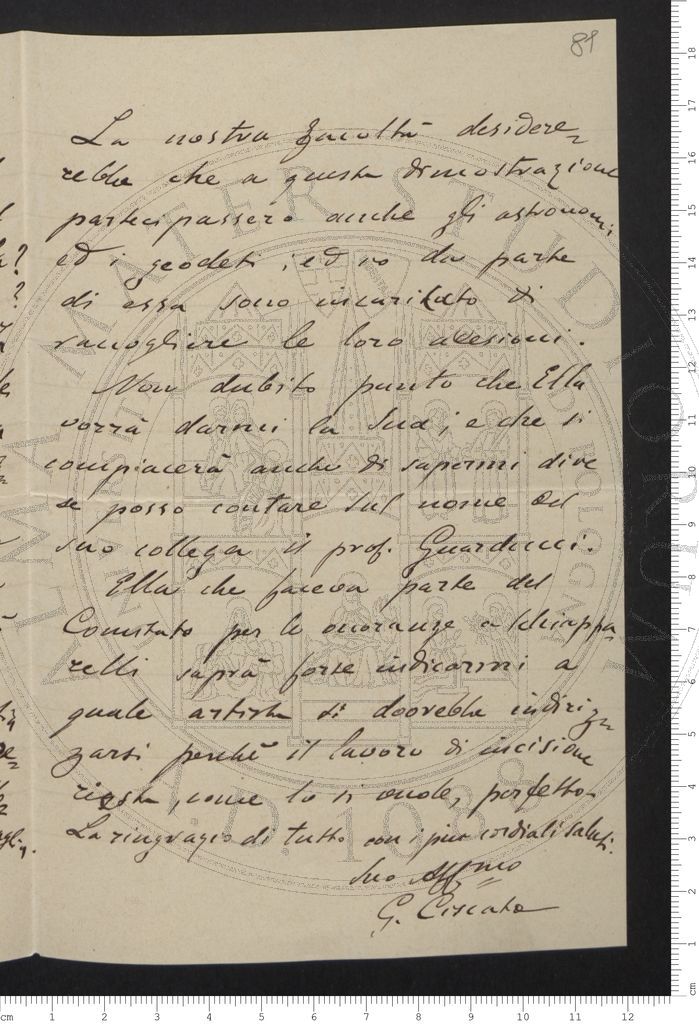 81
La nostra facoltà desidere=
rebbe che a questa dimostrazione
partecipassero anche gli astronomi
ed i geodeti; ed io da parte
di essa sono incaricato di
raccogliere le loro adesioni.
Non dubito punto che Ella
vorrà darmi la sua; e che si
compiacerà anche di sapermi dire
se posso contare sul nome del
suo collega il prof. Guarducci.
Ella che faceva parte del
Comitato per le onoranze a Schiappa
relli saprà forse indicarmi a
quale artista si dovrebbe indiriz=
zarsi perchè il lavoro di incisione
riesca, come lo si vuole, perfetto.
La ringrazio di tutto con i più cordiali saluti.
Suo Affmo
G. Ciscato
ALMA MATER STUDIORUM
A.D. 1088
cm 1 2 3 4 5 6 7 8 9 10 11 12
cm 1 2 3 4 5 6 7 8 9 10 11 12 13 14 15 16 17 18